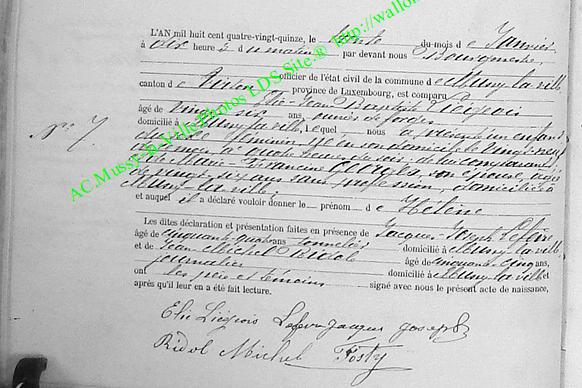 L'AN mil huit cent quatre-vingt-quinze, le trente du mois de Janvier
à dix heures du matin par devant nous Bourgmestre,
officier de l'état civil de la commune de Mussy-la-ville
canton de Virton province de Luxembourg, est comparu
Elie-Jean-Baptiste Liégeois
âgé de vingt-six ans ouvrier de forges
No 7
domicilié à Mussy-la-ville, lequel nous a présenté un enfant
du sexe féminin, né en son domicile
à quatre heures du soir, de lui comparant
et de Marie-Francine son épouse, âgée
de vingt-six ans sans profession, domiciliée à
Mussy-la-ville,
et auquel il a déclaré vouloir donner le prénom de Hélène
Les dites déclaration et présentation faites en présence de Jacques-Joseph Lefèvre
âgé de cinquante-quatre ans tonnelier domicilié à Mussy-la-ville
et de Jean-Michel Ridol âgé de cinquante-cinq ans,
journalier domicilié à Mussy-la-ville et
ont les père et témoins signé avec nous le présent acte de naissance,
après qu'il leur en a été fait lecture.
Elie Liégeois Lefevre Jacques Joseph
Ridol Michel Fosty
AC.Mussy-la-Ville.Photos LDS Site.® http://wallo